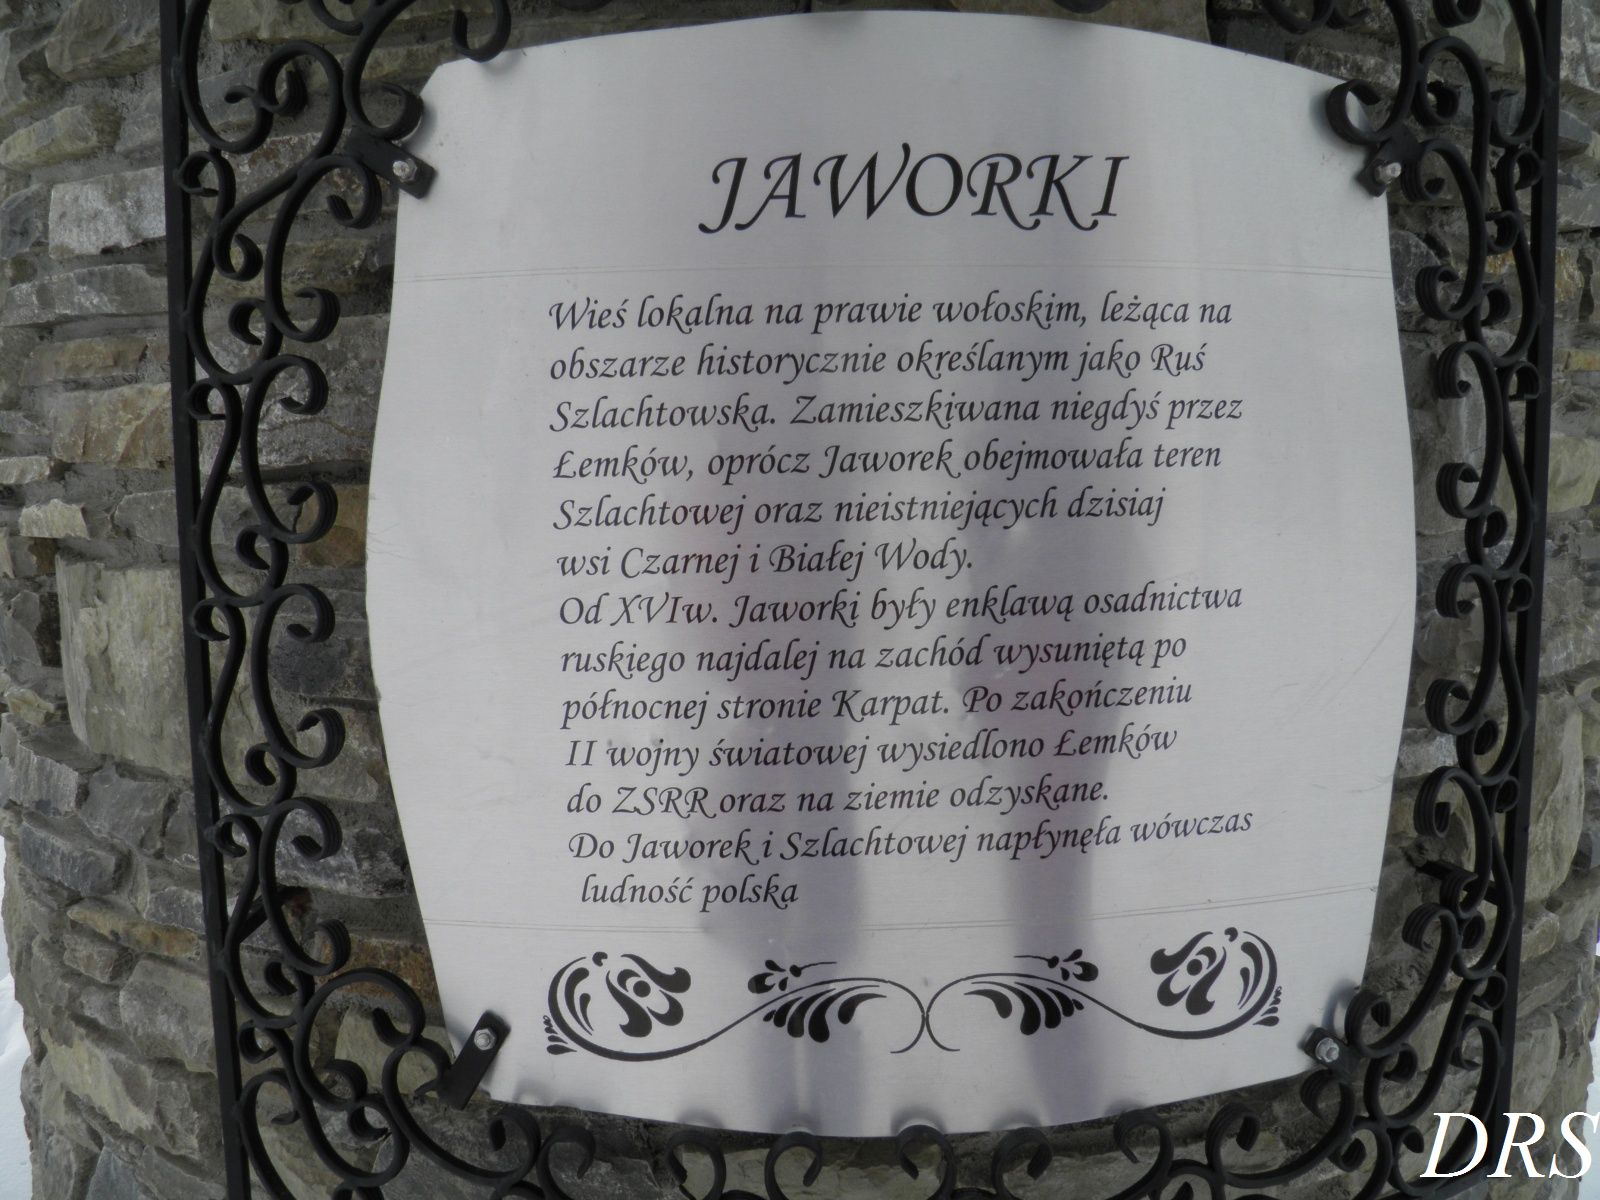 JAWORKI
Wieś lokalna na prawie wołoskim, leżąca na
obszarze historycznie określanym jako Ruś
Szlachtowska. Zamieszkiwana niegdyś przez
Łemków, oprócz Jaworek obejmowała teren
Szlachtowej oraz nieistniejących dzisiaj
wsi Czarnej i Białej Wody.
Od XVIw. Jaworki były enklawą osadnictwa
ruskiego najdalej na zachód wysuniętą po
północnej stronie Karpat. Po zakończeniu
II wojny światowej wysiedlono Łemków
do ZSRR oraz na ziemie odzyskane.
Do Jaworek i Szlachtowej napłynęła wówczas
ludność polska
DRS